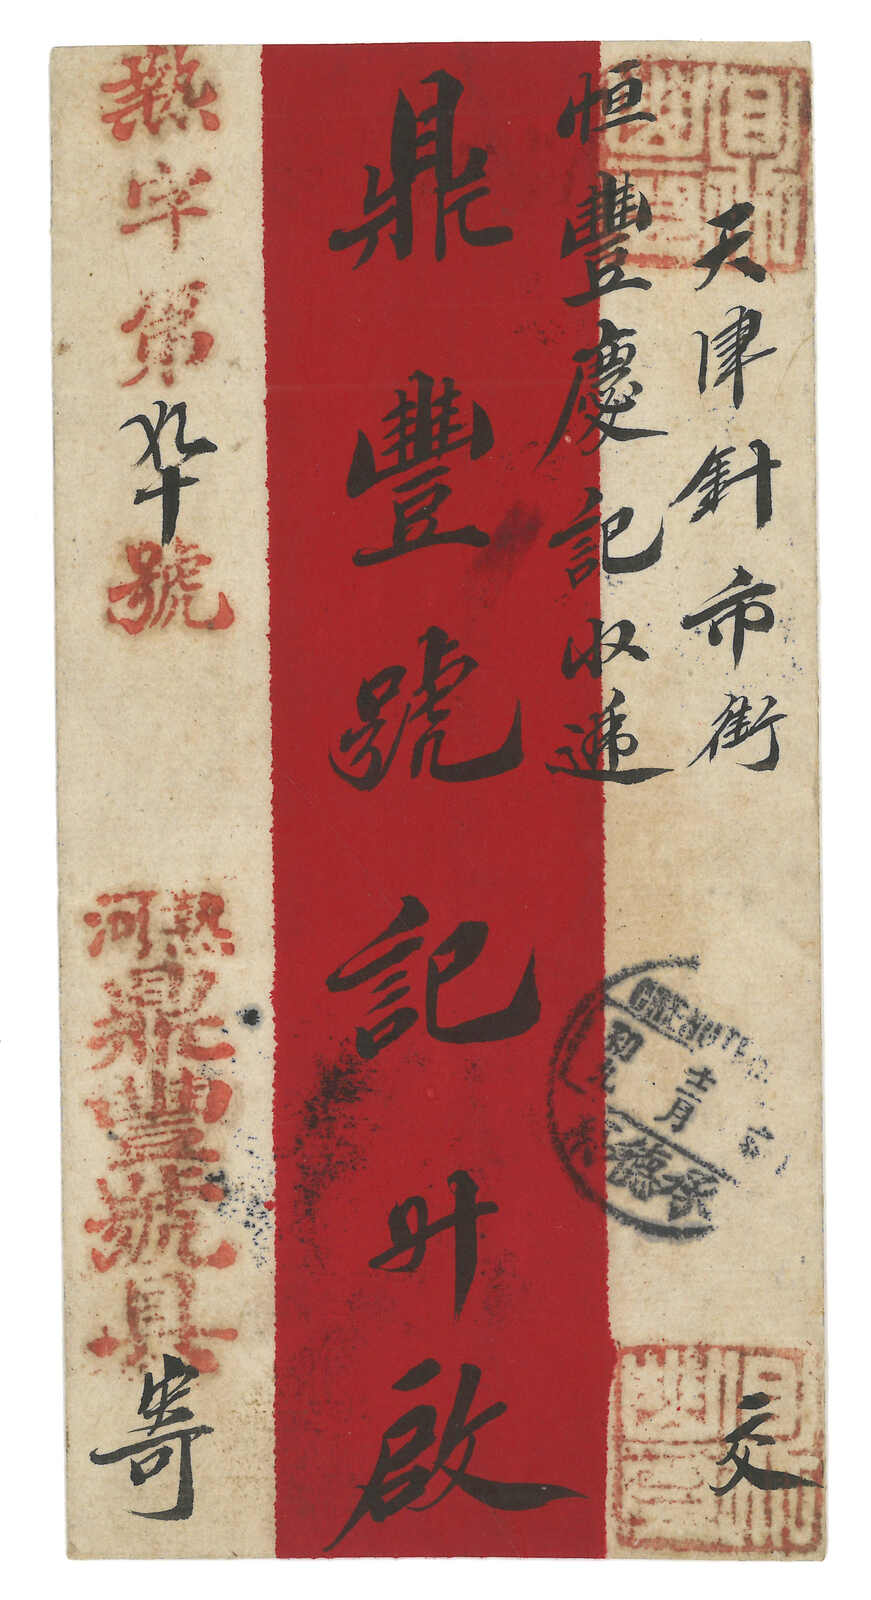 天津針市街
交
恒豐慶記收遞
鼎豐號記升啟
熱字第
九十
號
熱河
鼎豐號具
寄
CHENGTE
十二月
承德